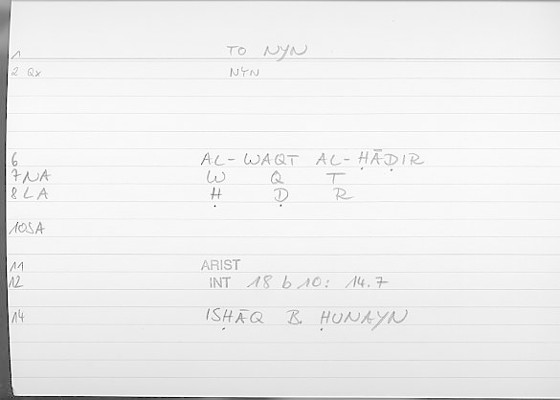 1 TO NYN
2 Qx NYN
6 AL-WAQT AL-ḤĀḌIR
7NA W Q T
8LA Ḥ Ḍ R
10SA
11 ARIST
12 INT 18 b 10: 14.7
14 ISḤĀQ B. ḤUNAYN